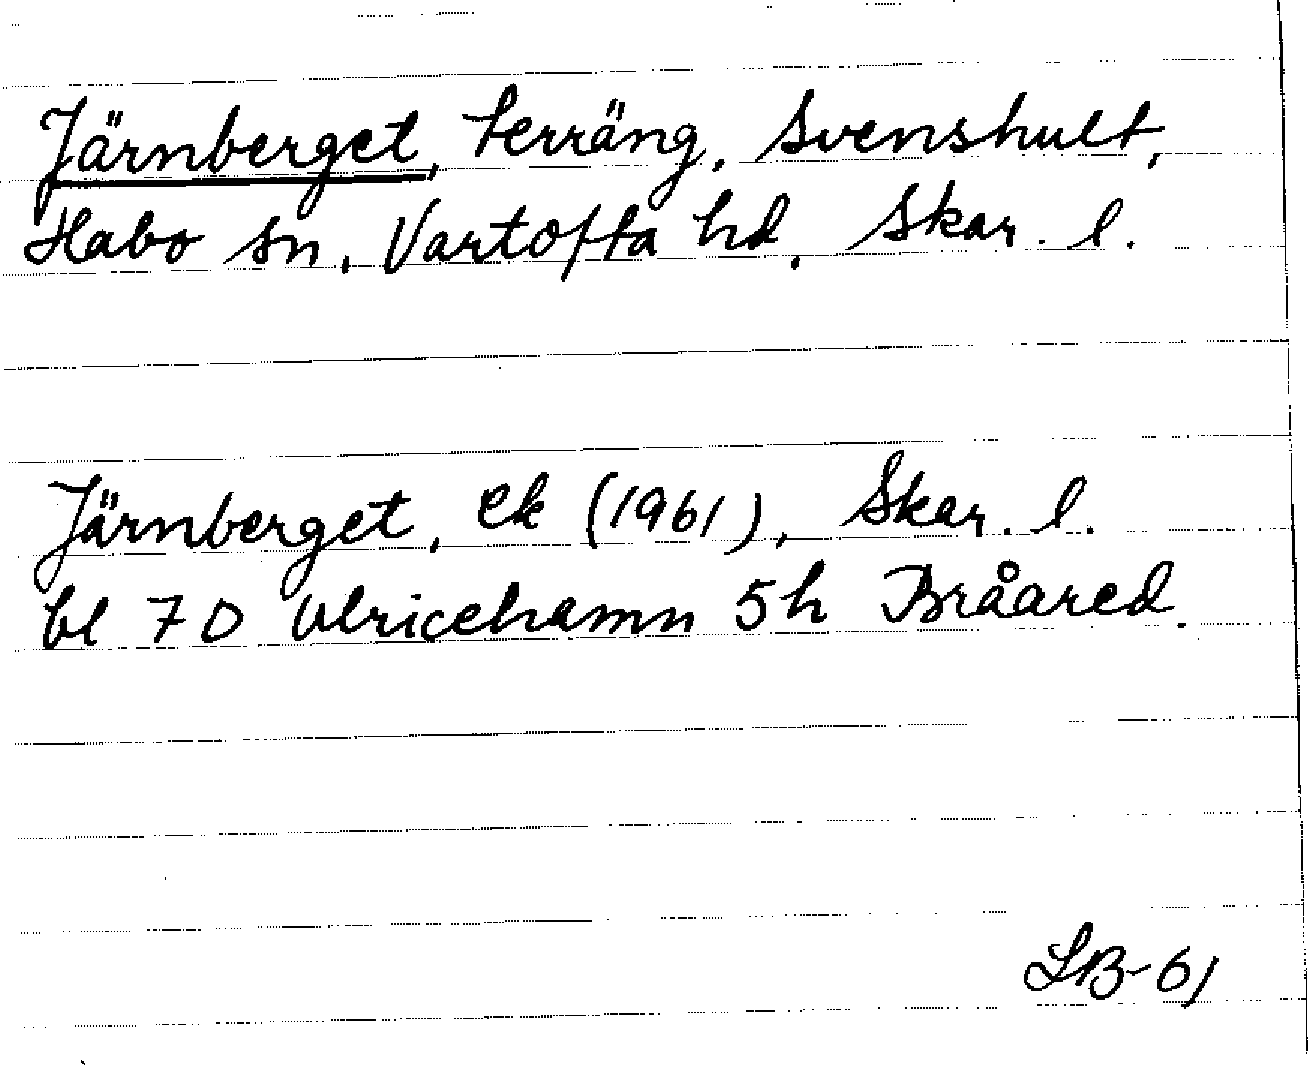 Järnberget, terräng, Svenshult,
Habo sn, Vartofta hd, Skar. l.
Järnberget, ek (1961), Skar. l.
bl 7 D Ulricehamn 5h Bråared.
LB-61